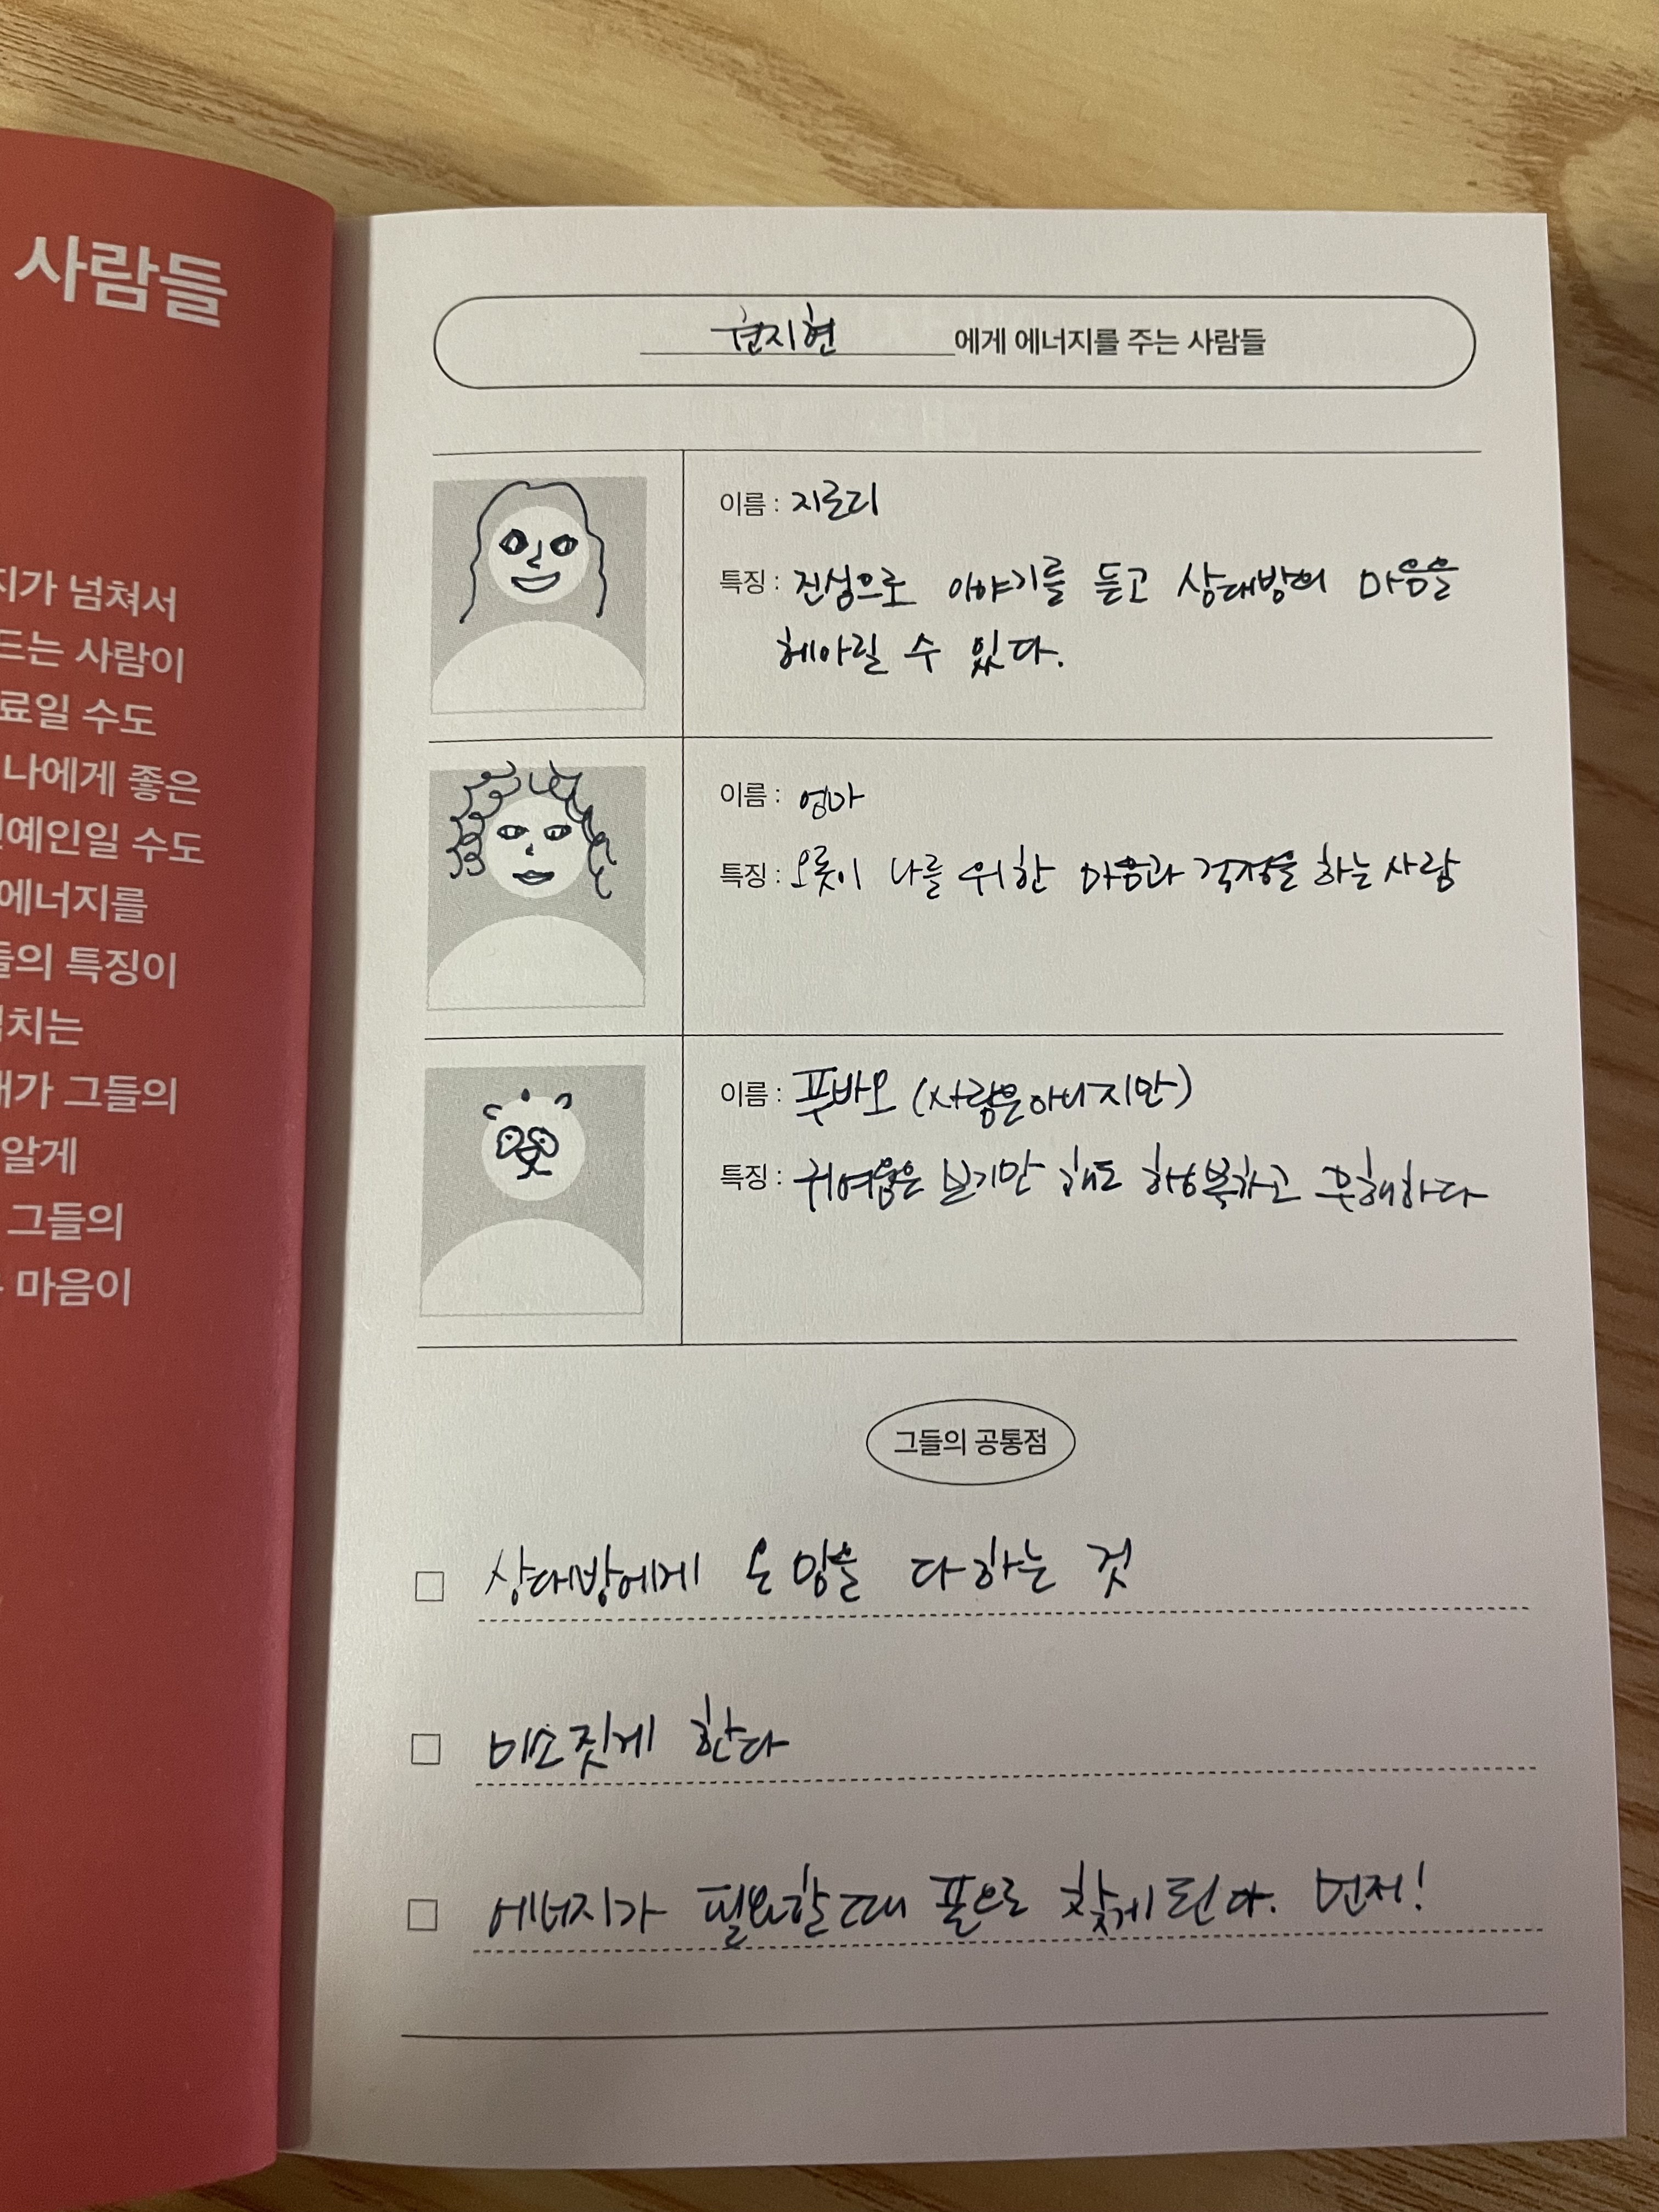 사람들
지가 넘쳐서
드는 사람이
료일 수도
나에게 좋은
예인일 수도
에너지를
들의 특징이
치는
내가 그들의
알게
그들의
마음이
권지현 에게 에너지를 주는 사람들
이름 : 지로리
특징 : 진심으로 이야기를 듣고 상대방의 마음을
헤아릴 수 있다.
이름 : 엄마
특징 : 오롯이 나를 위한 마음과 걱정을 하는 사람
이름 : 푸바오 (사람은아니지만)
특징 : 귀여움은 보기만 해도 행복하고 무해하다
그들의 공통점
상대방에게 온 맘을 다하는 것
미소짓게 한다
에너지가 필요할때 폴으로 찾게된다. 먼저!